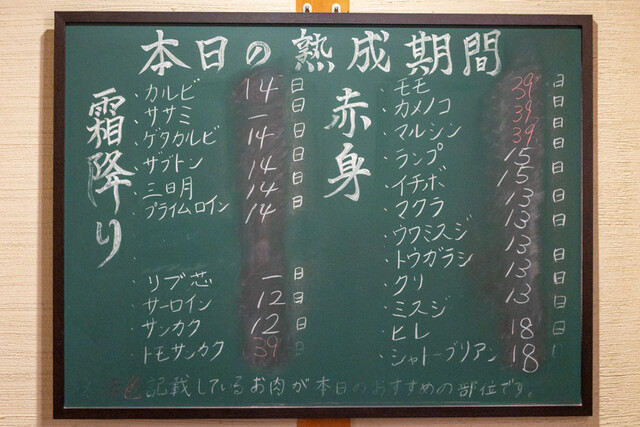 本日の熟成期間
霜降り
・カルビ 14日
・ササミ ー日
・ゲタカルビ 14日
・ザブトン 14日
・三日月 14日
・プライムロイン 14日
・リブ芯 ー日
・サーロイン 12日
・サンカク 12日
・トモサンカク 39日
赤身
・モモ 39日
・カメノコ 39日
・マルシン 39日
・ランプ 15日
・イチボ 15日
・マクラ 13日
・ウワミスジ 13日
・トウガラシ 13日
・クリ 13日
・ミスジ 13日
・ヒレ 18日
・シャトーブリアン 18日
※赤色記載しているお肉が本日のおすすめの部位です。